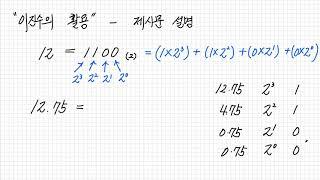 "이진수의 활용" - 제시문 설명
12 = 1100 (2) = (1×2³) + (1×2²) + (0×2¹) + (0×2⁰)
2³ 2² 2¹ 2⁰
12.75 =
12.75 2³ 1
4.75 2² 1
0.75 2¹ 0
0.75 2⁰ 0